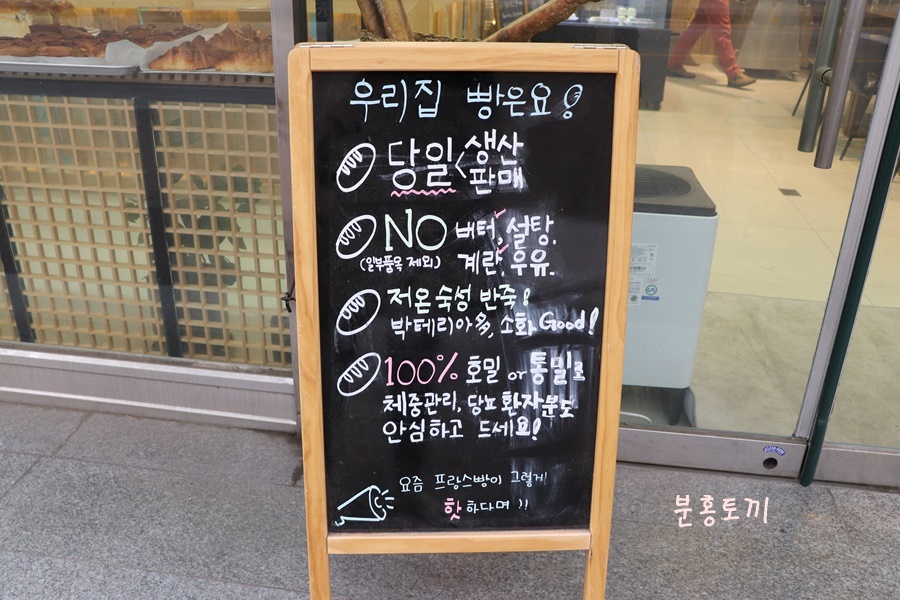 우리집 빵은요!
당일< 생산
판매
NO 버터, 설탕,
(일부품목 제외) 계란, 우유.
저온숙성 반죽!
박테리아多, 소화Good!
100% 호밀 or 통밀로
체중관리, 당뇨환자분도
안심하고 드세요!
요즘 프랑스빵이 그렇게!
핫하다며!!
분홍토끼